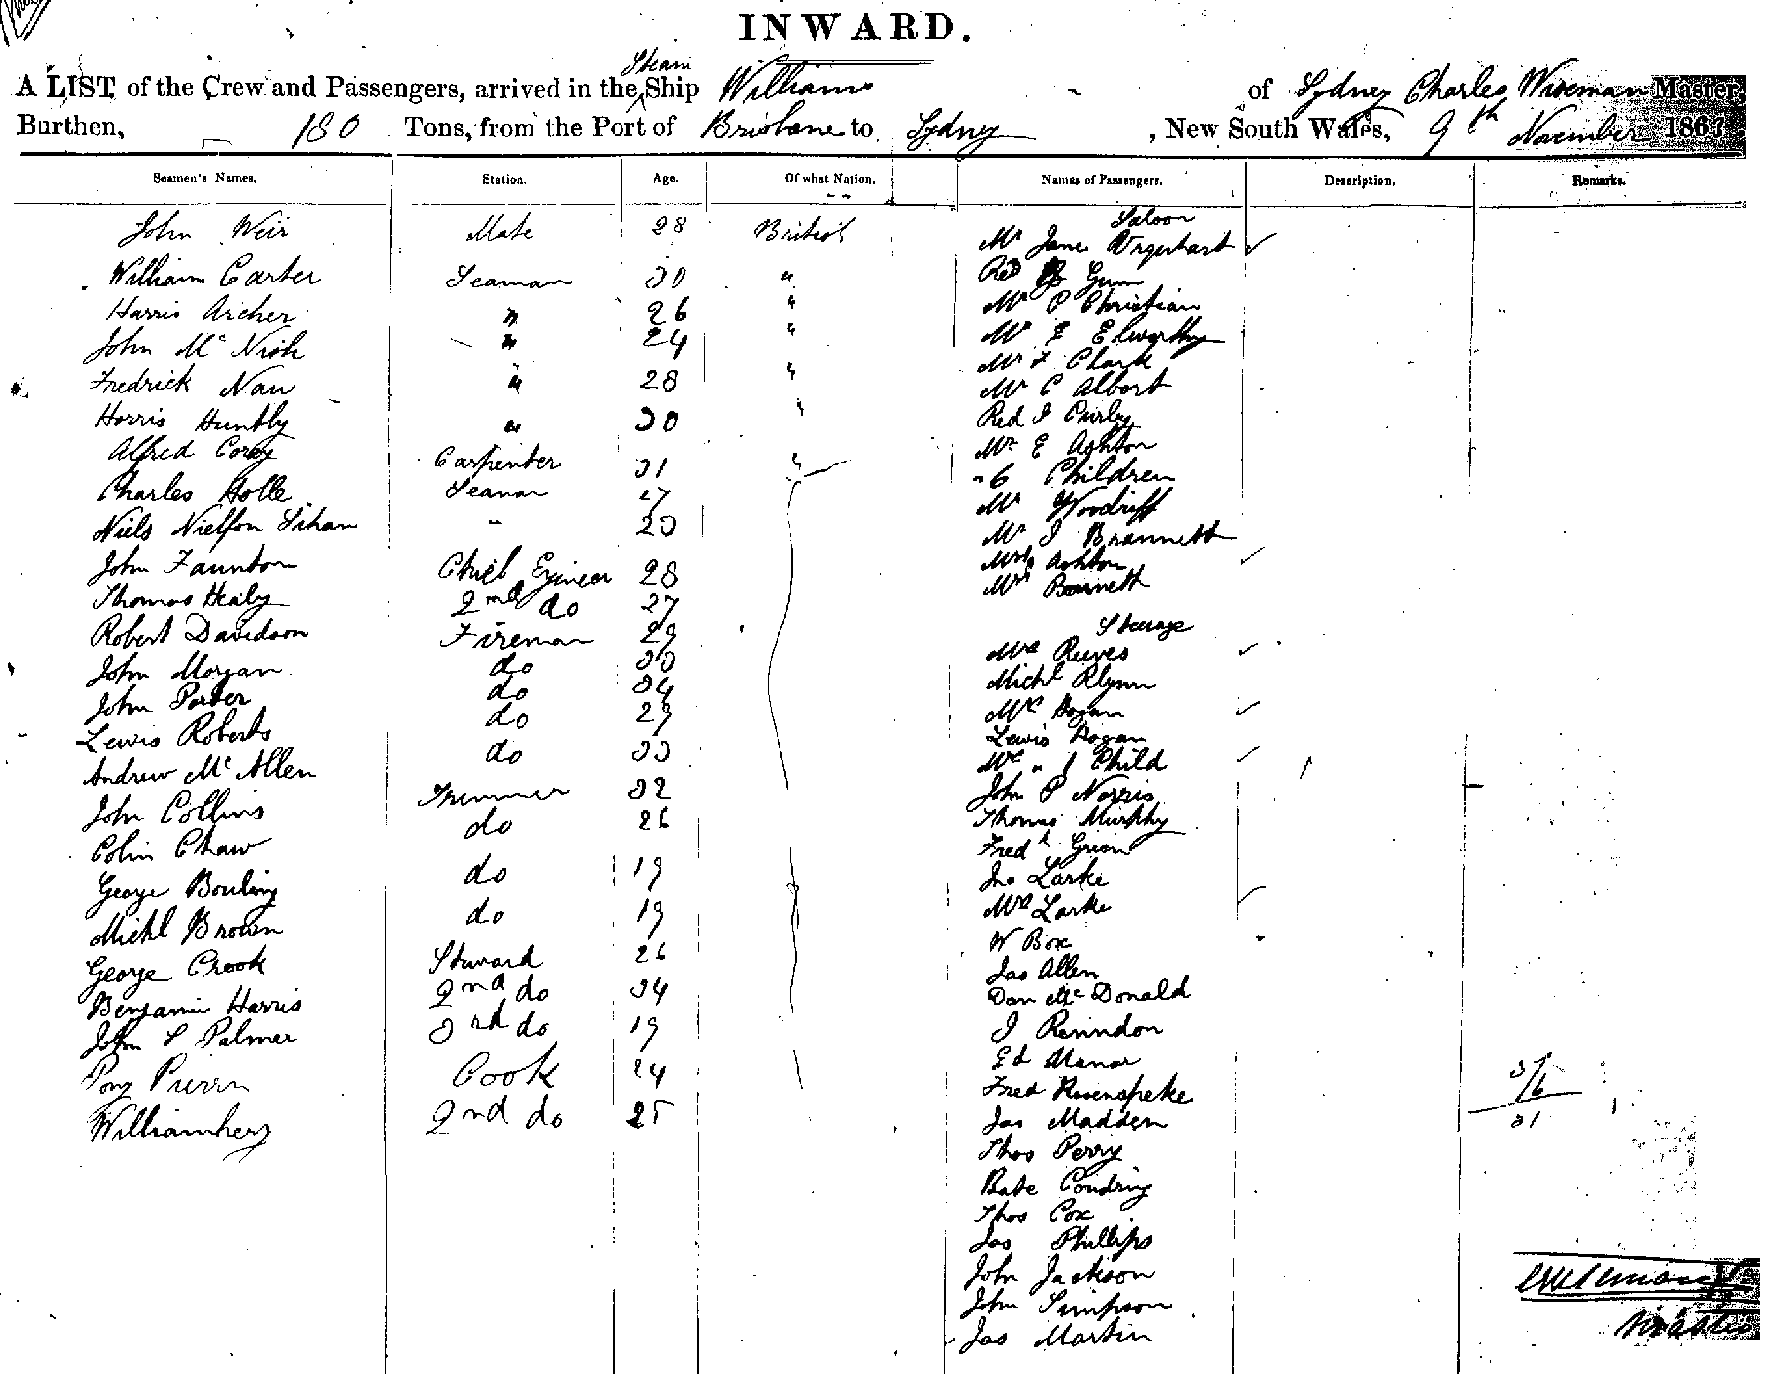 INWARD.
A LIST of the Crew and Passengers, arrived in the Steam Ship Williams of Sydney Charles Wiseman Master,
Burthen, 180 Tons, from the Port of Brisbane to Sydney, New South Wales, 9th November 186
Seamen's Names. Station. Age. Of what Nation. Names of Passengers. Description. Remarks.
John Weir Mate 28 British
William Carter Seaman 30 "
Harris Archer " 26 "
John Mc Nish " 24 "
Fredrick Nau " 28 "
Harris Huntly " 30 "
Alfred Corey Carpenter 31 "
Charles Holle Seaman 27
Niels Nielson 23
John Faunton Chief Egineer 28
Thomas Healy 2nd do 27
Robert Davidson Fireman 29
John Morgan do 33
John Porter do 34
Lewis Roberts do 29
Andrew Mc Allen do 33
John Collins Trimmer 32
Colin Chaw do 26
George Bouling do 19
Michl Brown do 19
George Crook Steward 26
Benjamin Harris 2nd do 34
John S Palmer 3rd do 19
Cook 24
2nd do 25
Saloon
Jane Urquhart
Gunn
Mr C Christian
Mr E Elworthy
Mr F Clark
Mr C Albert
Revd J Curley
Mr E Ashton
" 6 Children
Mr Woodriff
Mr J Brannett
Mrs Ashton
Barnett
Steerage
Mrs Reeves
Michl Rlynn
Mrs Hogan
Lewis Hogan
Mrs " 1 Child
John P Norris
Thomas Murphy
Fredk Green
Jno Larke
Mrs Larke
W Box
Jas Allen
Dan Mc Donald
J Renndon
Ed Manar
Fred
Jas Madden
Thos Perry
Bate Condring
Thos Cox
Jas Phillips
John Jackson
John Simpson
Jas Martin
3/6
31
CWiseman
Master